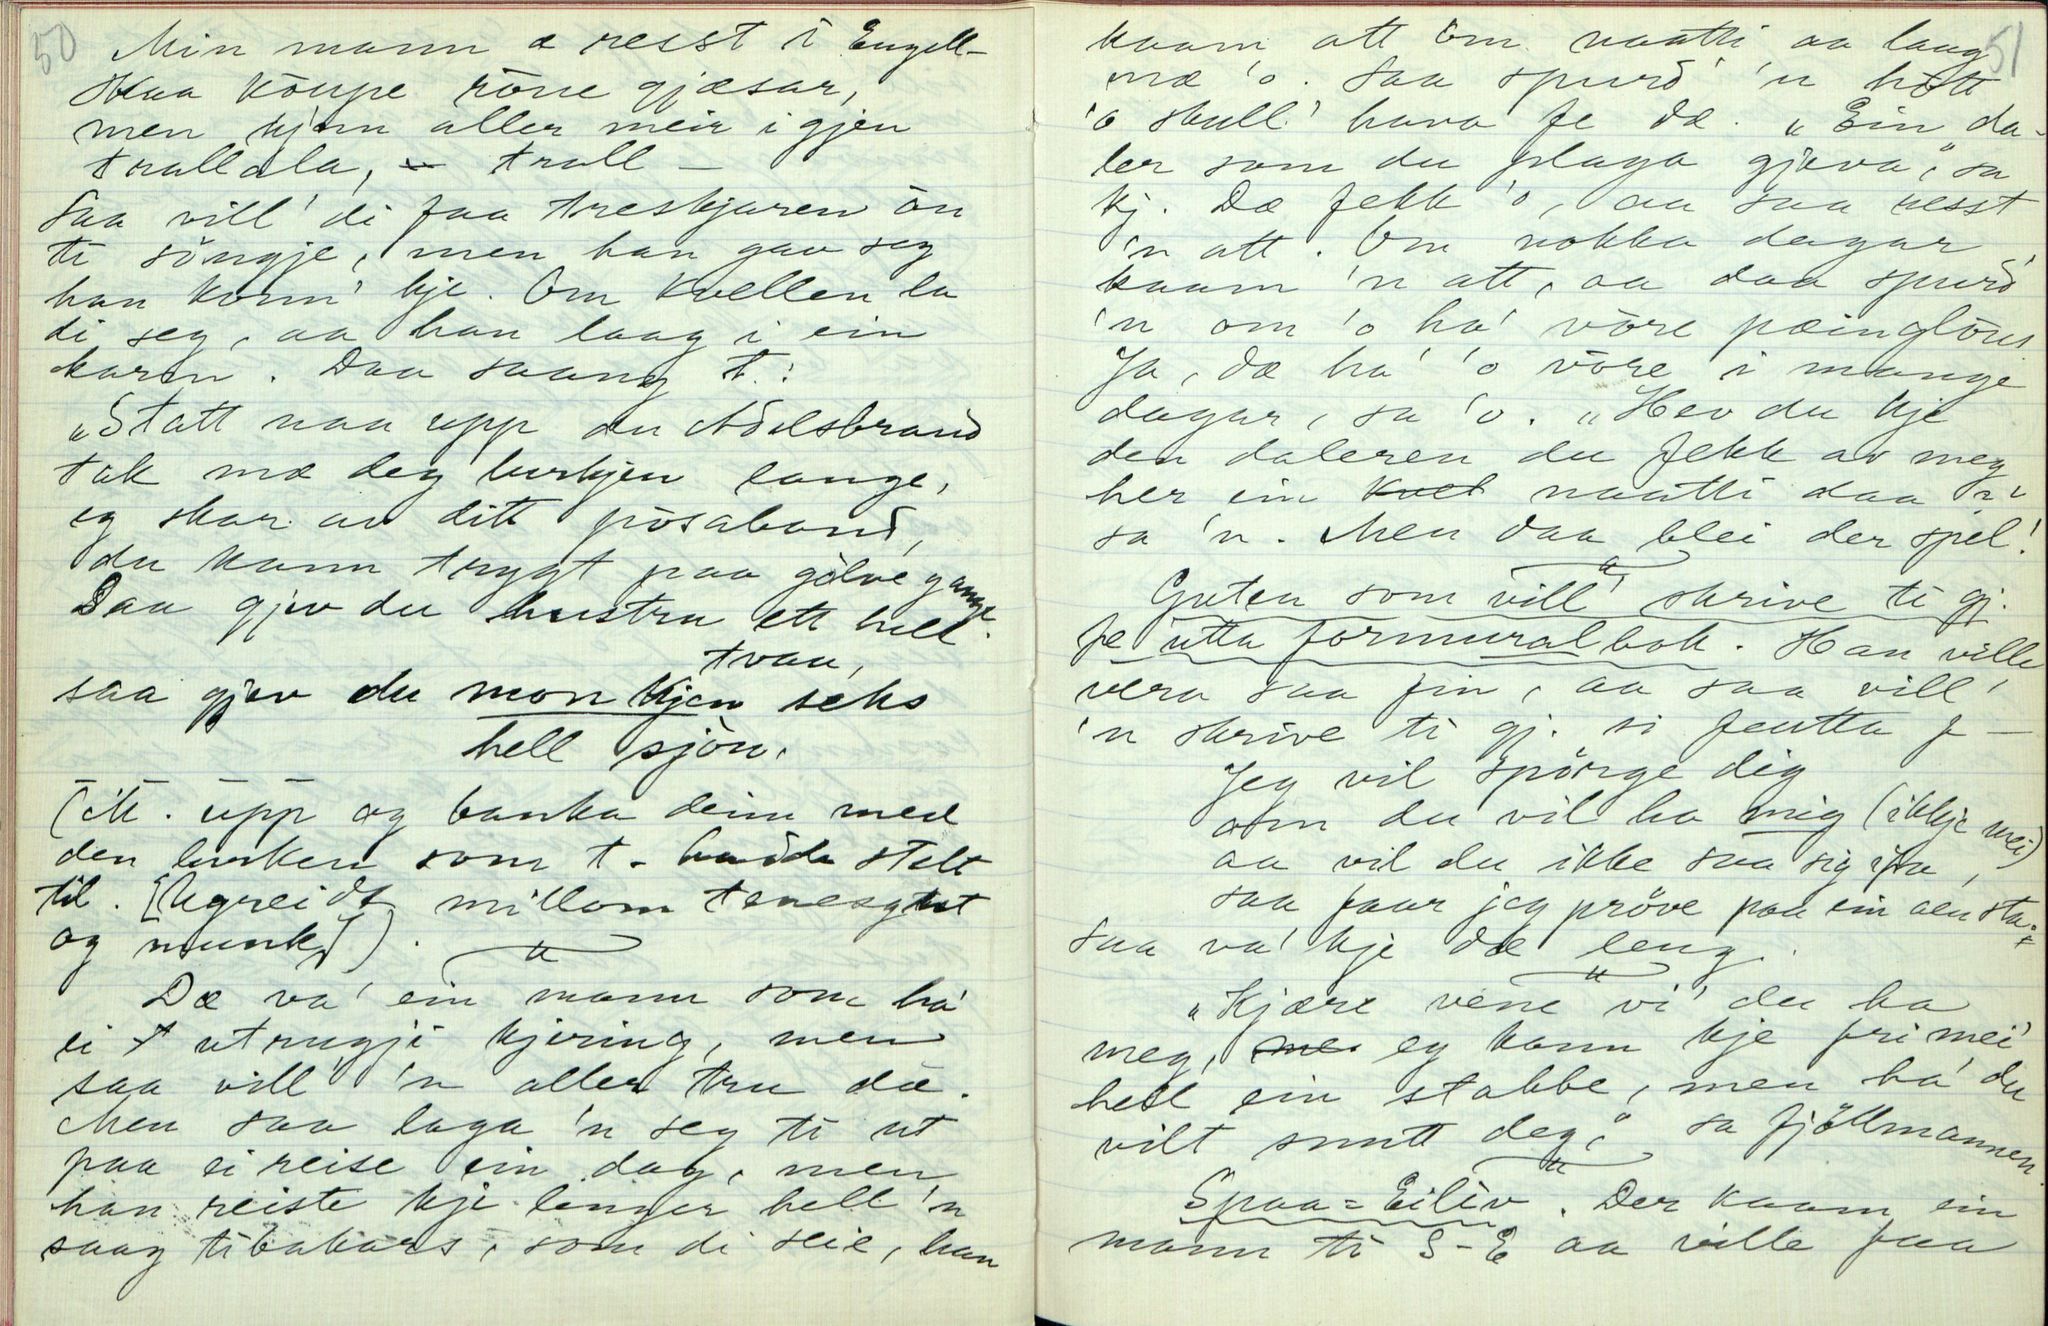 50
Min mann æ resst i Engell-
skaa köupe röne gjæsar,
men kjem aller meir i gjen
trallala, trall —
Saa vill' di faa treskjaren ön
ti söngje, men han gav seg
han konn' kje. Om kvellen la
di seg, aa han laag i ein
karm. Daa saang t.:
"Statt naa upp du Adelsbrand
tak mæ deg lurkjen lange,
eg skar av ditt posaband,
du kann trygt paa gölve gange.
Daa gjev du hustru ett hell
tvaa,
saa gjev du mon kjen seks
hell sjöu.
(M. upp og banka deim med
den lurken som t. hadde stelt
til. [Ugreidt millom tenesgut
og munk]).
Dæ va' ein mann som ha'
ei utrugji kjering, men
saa vill' 'n aller tru dæ.
Men saa laga 'n seg ti ut
paa ei reise ein dag, men
han reiste kje lenger hell 'n
saag tibakars, som di seie, han
51
kaam att om naatti aa laag
mæ 'o. Saa spurd' 'n hött
'o skull' hava fe dæ. "Ein da-
ler som du plaga gjeva", sa
kj. Dæ fekk 'o, aa saa resst
'n att. Om nokka dagar
kaam 'n att, aa daa spurd'
'n om 'o ha' vöre pæinglöus
Ja, dæ ha' 'o vöre i mange
dagar, sa 'o. "Hev du kje
den daleren du fekk av meg
her ein naatti daa"
sa 'n. Men daa blei der spel!
Guten som vill' skrive ti gj.
fe utta formural bok. Han ville
vera saa fin, aa saa vill'
'n skrive ti gj. si feutta f —
Jeg vil spörge dig
om du vil ha mig (ikkje mei)
aa vil du ikke saa sig ifra,
saa faar jeg pröve paa ein aen sta.
Saa va' kje dæ leng.
"Kjære vene vi' du ha
meg, eg kann kje fri mei'
hell ein stabbe, men ha' du
vilt snutt deg", sa fjöllmannen.
Spaa=Eiliv. Der kaam ein
mann ti S-E aa ville faa